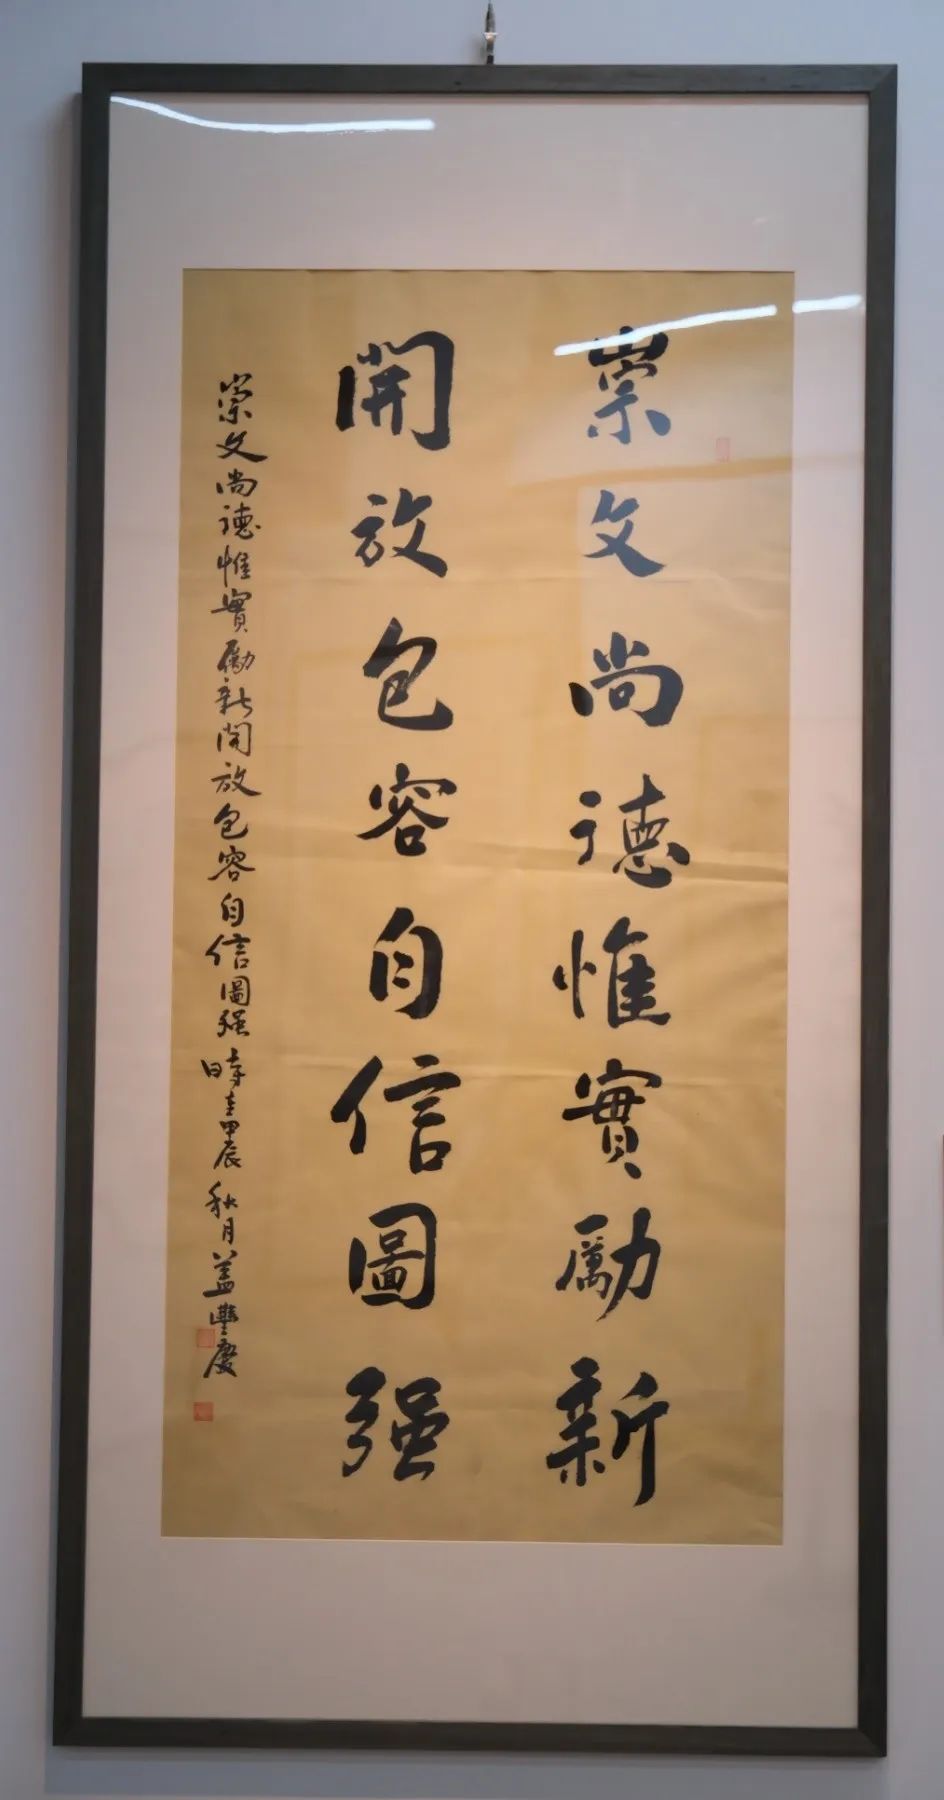 崇文尚德惟實勵新
開放包容自信圖强
崇文尚德惟實勵新開放包容自信圖强時在甲辰秋月蓋豐慶